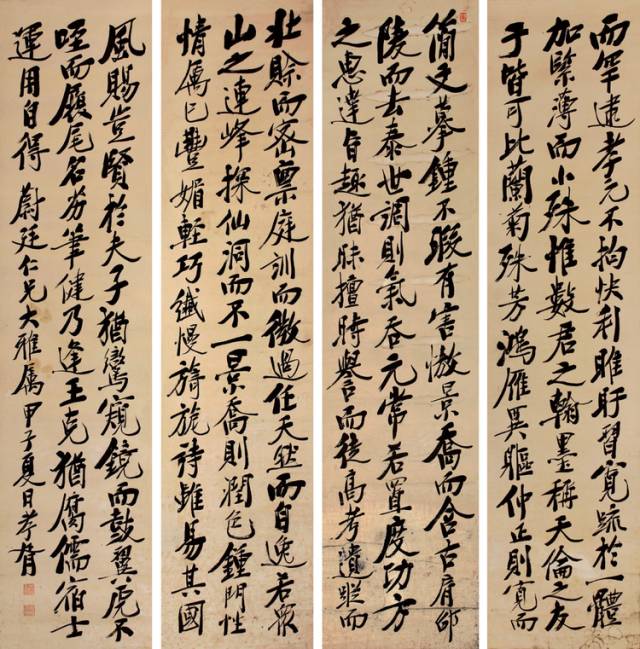 而罕逮孝元不拘快利睢盱習寬疏於一體
加緊薄而小殊惟數君之翰墨稱天倫之友
于皆可比蘭菊殊芳鴻雁異軀仲正則寬而
簡又摹鍾不瑕有害傲景喬而含古肩邵
陵而去泰世調則氣吞元常若置度功方
之惠達旨趣猶昧擅時譽而徒高考遺蹤而
壯賒而密稟庭訓而微過任天然而自逸若眾
山之連峰探仙洞而不一景喬則潤色鍾門性
情勵己豐媚輕巧纖慢旖旎詩雖易其國
風賜豈賢於夫子猶鸞窺鏡而鼓翼虎不
咥而履尾名芬筆健乃逢王克猶腐儒宿士
運用自得 蔚廷仁兄大雅属 甲子夏日孝胥